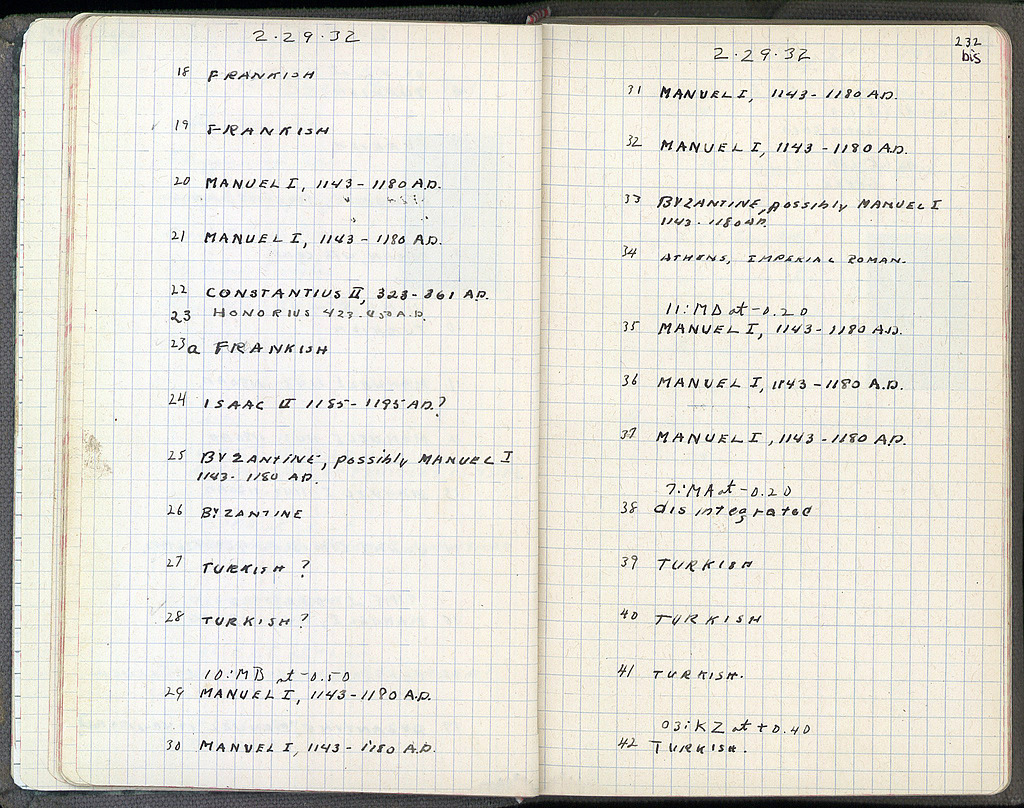 2·29·32
18 FRANKISH
19 FRANKISH
20 MANUEL I, 1143-1180 A.D.
21 MANUEL I, 1143-1180 A.D.
22 CONSTANTIUS II, 323-361 A.D.
23 HONORIUS 423-450 A.D.
23a FRANKISH
24 ISAAC II 1185-1195 A.D.?
25 BYZANTINE, possibly MANUEL I
1143-1180 A.D.
26 BYZANTINE
27 TURKISH ?
28 TURKISH ?
10:MB at -0.50
29 MANUEL I, 1143-1180 A.D.
30 MANUEL I, 1143-1180 A.D.
232
bis
2·29·32
31 MANUEL I, 1143-1180 A.D.
32 MANUEL I, 1143-1180 A.D.
33 BYZANTINE, possibly MANUEL I
1143-1180 A.D.
34 ATHENS, IMPERIAL ROMAN.
11:MD at -0.20
35 MANUEL I, 1143-1180 A.D.
36 MANUEL I, 1143-1180 A.D.
37 MANUEL I, 1143-1180 A.D.
7:MA at -0.20
38 disintegrated
39 TURKISH
40 TURKISH
41 TURKISH.
03:KZ at +0.40
42 TURKISH.